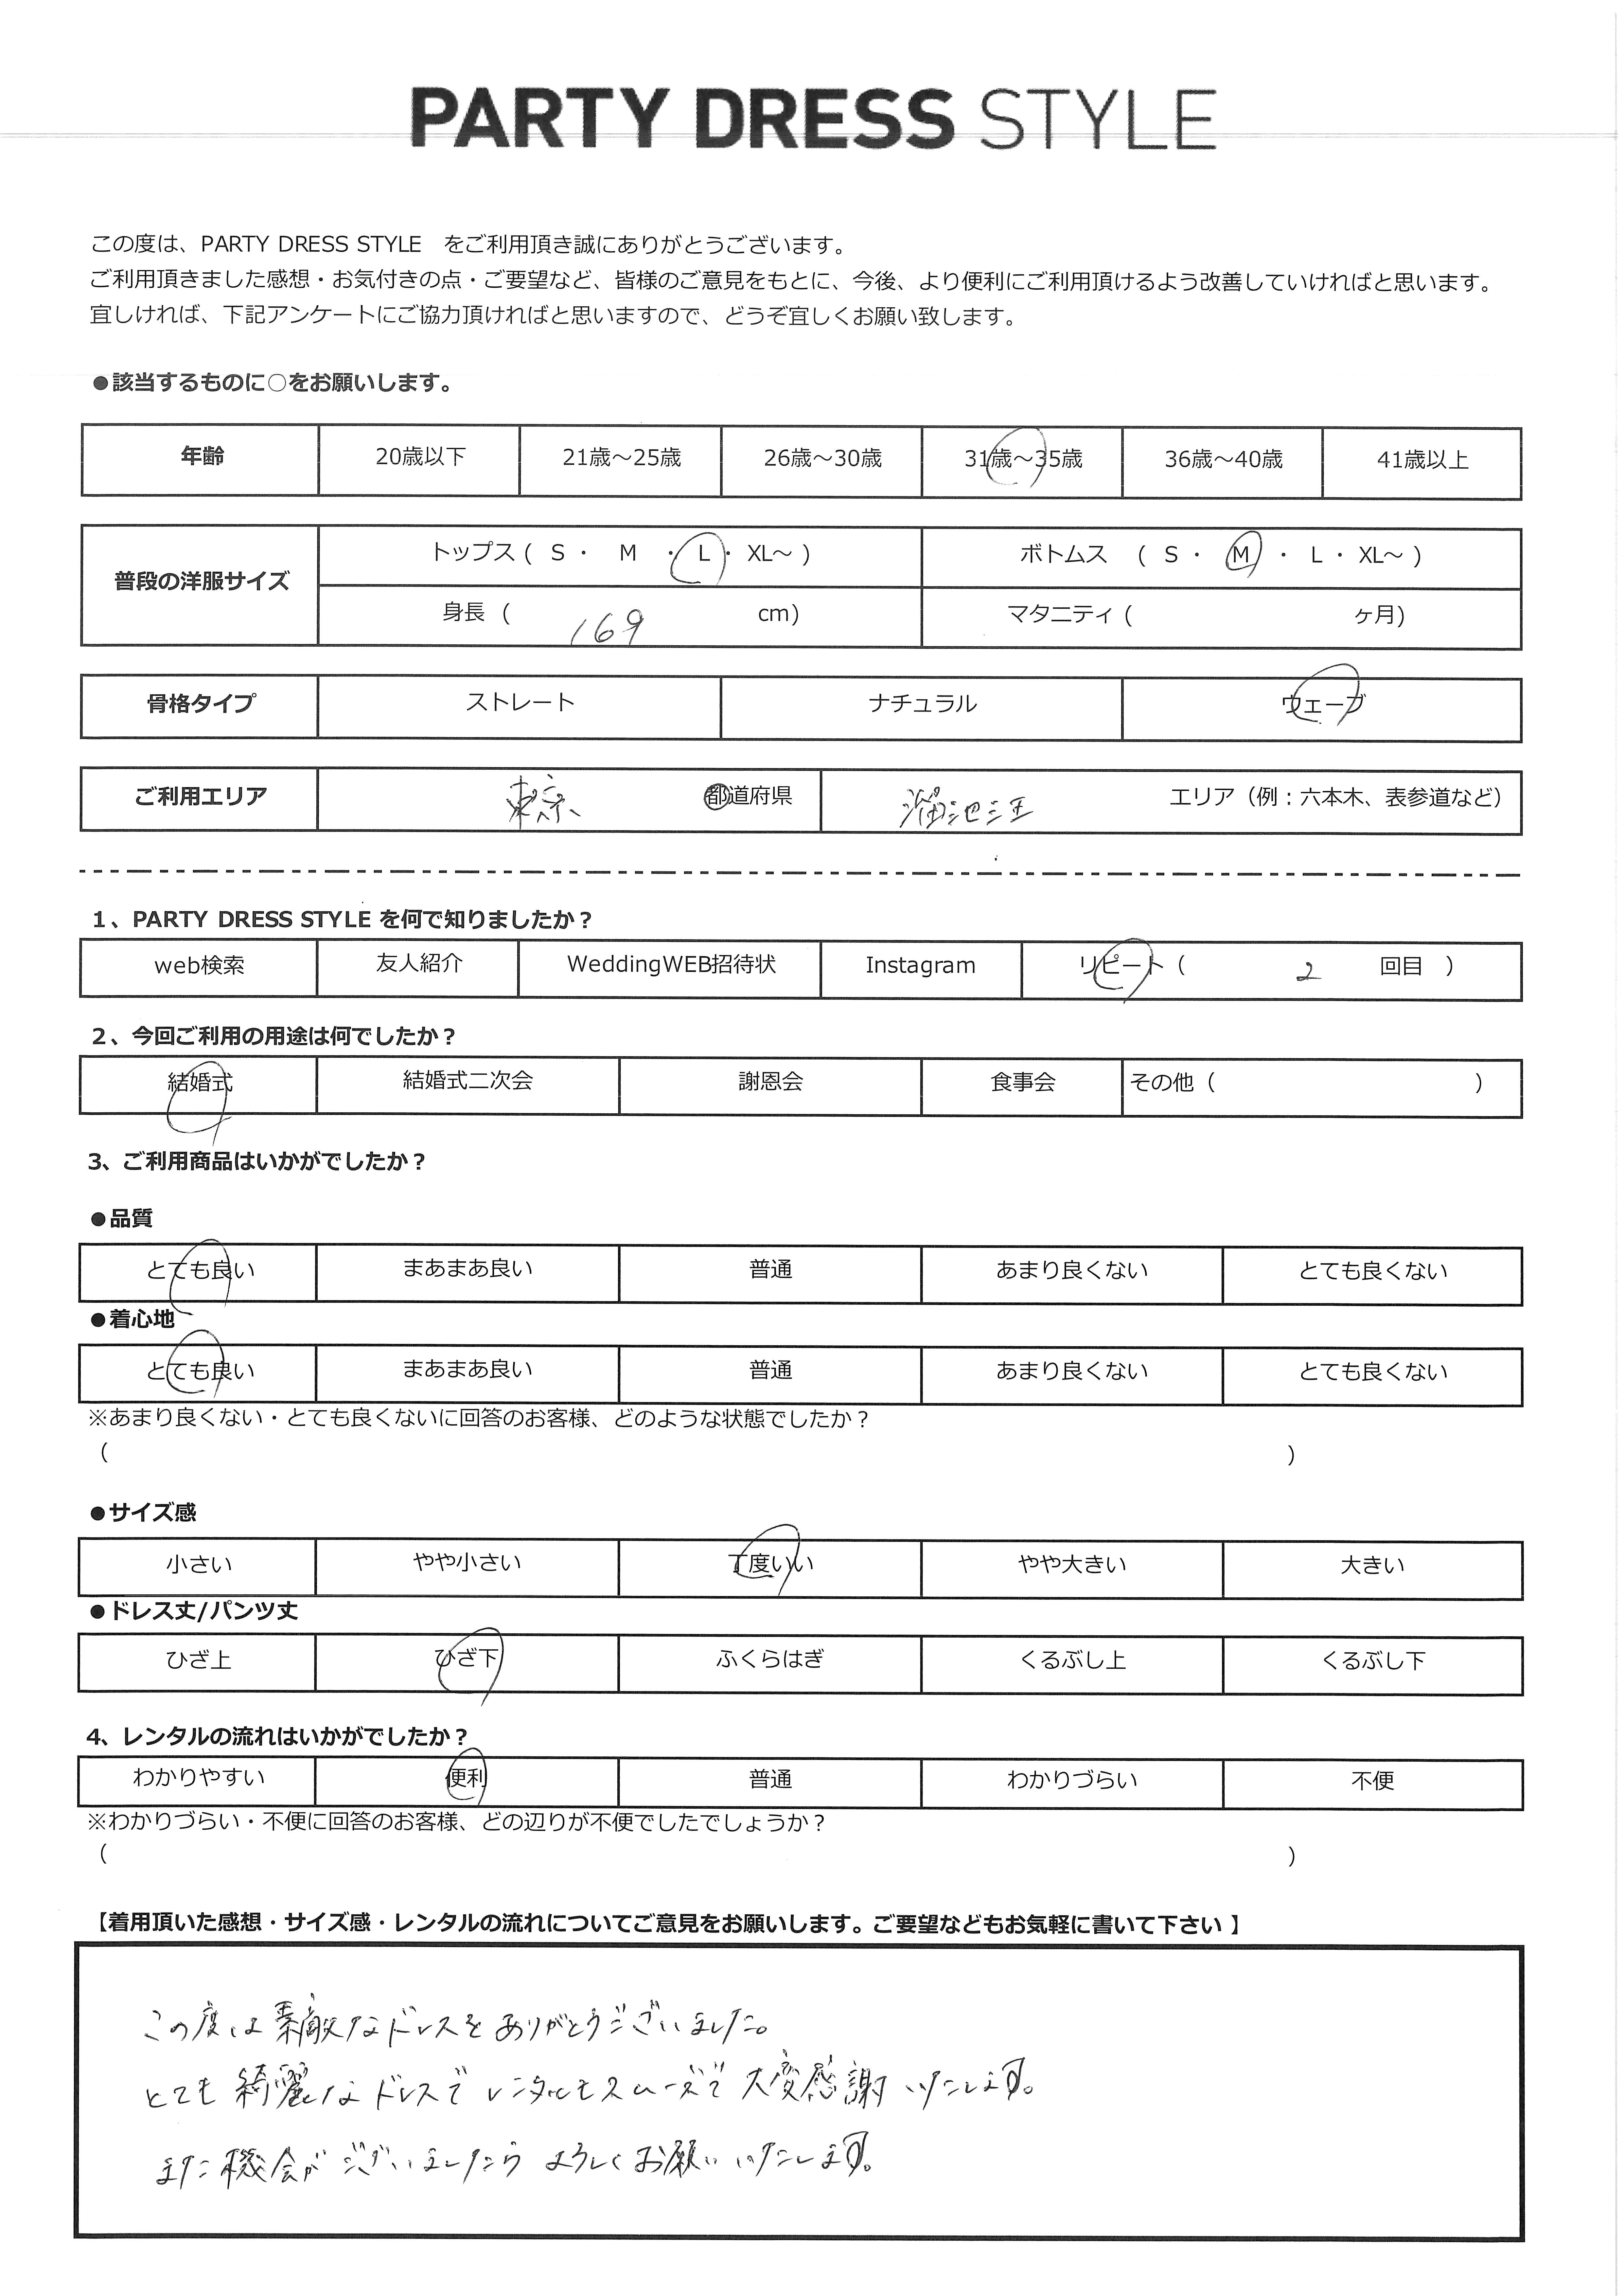 PARTY DRESS STYLE
この度は、PARTY DRESS STYLE　をご利用頂き誠にありがとうございます。
ご利用頂きました感想・お気付きの点・ご要望など、皆様のご意見をもとに、今後、より便利にご利用頂けるよう改善していければと思います。
宜しければ、下記アンケートにご協力頂ければと思いますので、どうぞ宜しくお願い致します。
●該当するものに○をお願いします。
年齢 20歳以下 21歳～25歳 26歳～30歳 31歳～35歳 36歳～40歳 41歳以上
普段の洋服サイズ トップス ( S ・ M ・ L ・ XL～ ) ボトムス ( S ・ M ・ L ・ XL～ )
身長 ( 169 cm) マタニティ ( ヶ月)
骨格タイプ ストレート ナチュラル ウェーブ
ご利用エリア 東京 都道府県 溜池山王 エリア（例：六本木、表参道など）
1、PARTY DRESS STYLE を何で知りましたか？
web検索 友人紹介 WeddingWEB招待状 Instagram リピート ( 2 回目 )
2、今回ご利用の用途は何でしたか？
結婚式 結婚式二次会 謝恩会 食事会 その他 ( )
3、ご利用商品はいかがでしたか？
●品質
とても良い まあまあ良い 普通 あまり良くない とても良くない
●着心地
とても良い まあまあ良い 普通 あまり良くない とても良くない
※あまり良くない・とても良くないに回答のお客様、どのような状態でしたか？
( )
●サイズ感
小さい やや小さい 丁度いい やや大きい 大きい
●ドレス丈/パンツ丈
ひざ上 ひざ下 ふくらはぎ くるぶし上 くるぶし下
4、レンタルの流れはいかがでしたか？
わかりやすい 便利 普通 わかりづらい 不便
※わかりづらい・不便に回答のお客様、どの辺りが不便でしたでしょうか？
( )
【着用頂いた感想・サイズ感・レンタルの流れについてご意見をお願いします。ご要望などもお気軽に書いて下さい 】
この度は素敵なドレスをありがとうございました。
とても綺麗なドレスでレンタルもスムーズで大変感謝いたします。
また機会がございましたらよろしくお願いいたします。